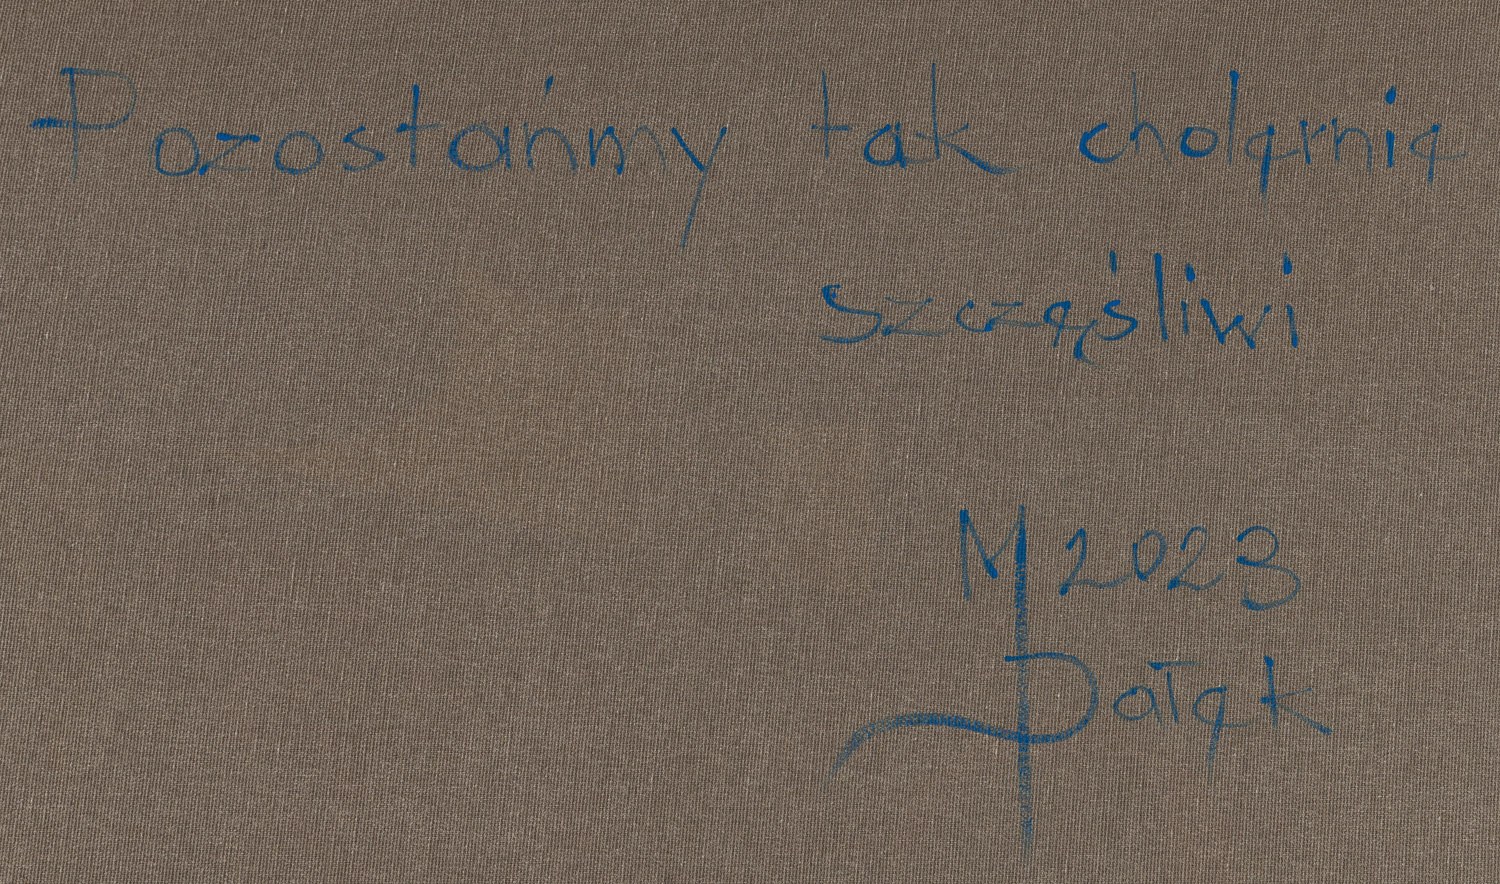 Pozostańmy tak cholernie
szczęśliwi
M 2023
Pałek